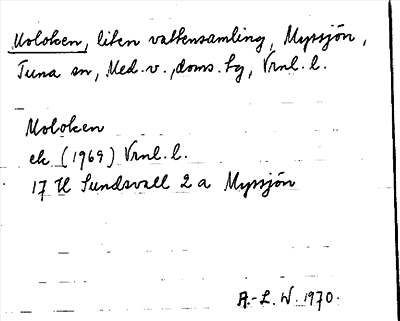 Moloken, liten vattensamling, Myssjön,
Tuna sn, Med. v., doms. tg, Vrnl. l.
Moloken
ek (1969) Vrnl. l.
17 H Sundsvall 2 a Myssjön
A.-L. W. 1970.